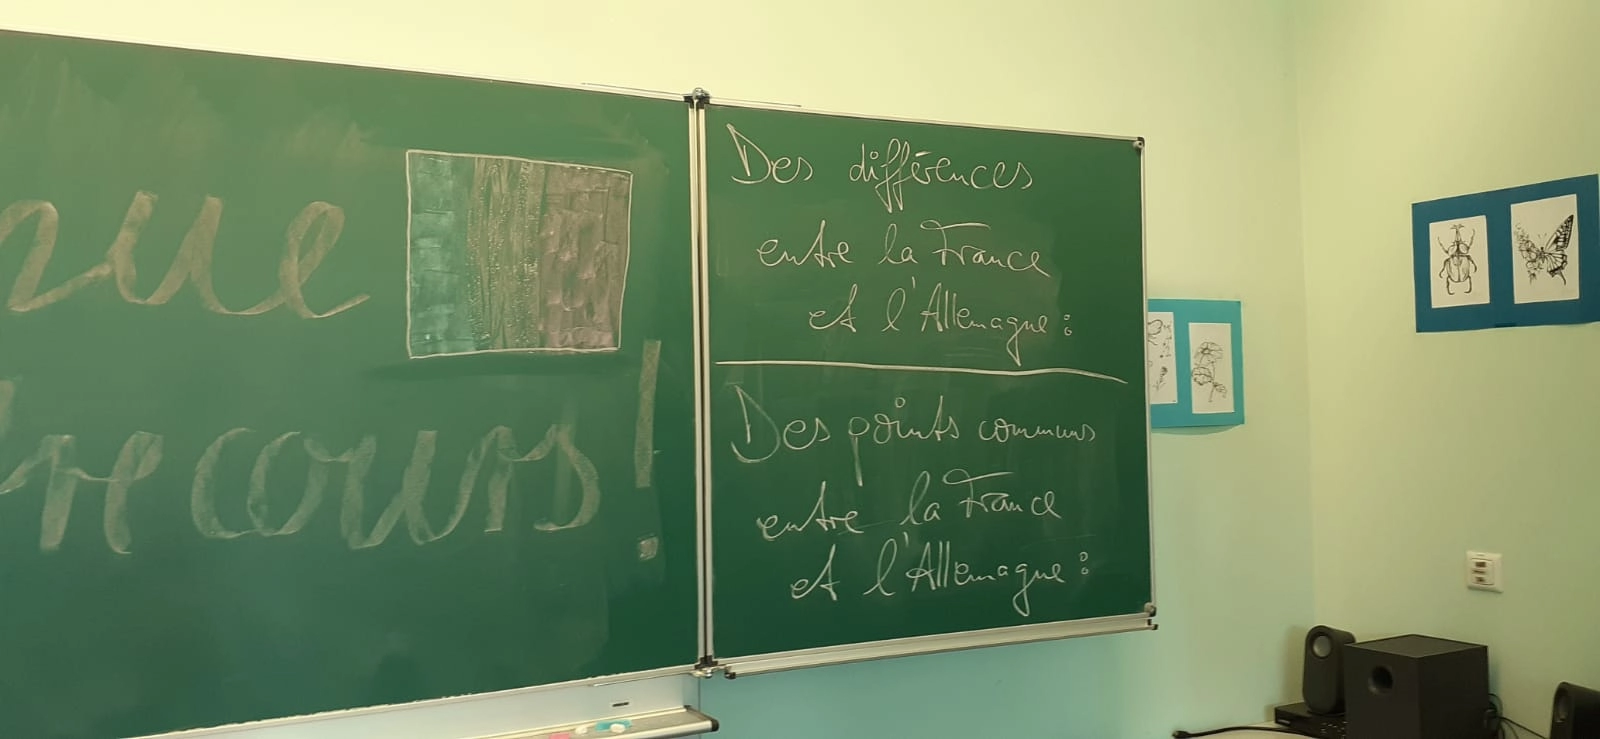 que
recours!
Des différences
entre la France
et l'Allemagne :
Des points communs
entre la France
et l'Allemagne :